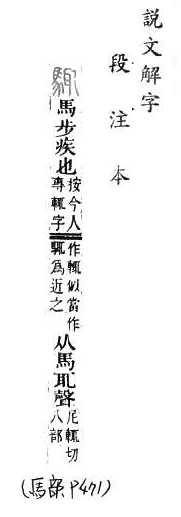 說文解字
段注本
馬步疾也 按今人專輒字作輒似當作為近之 从馬耴聲 尼輒切 八部
(馬部 P471)